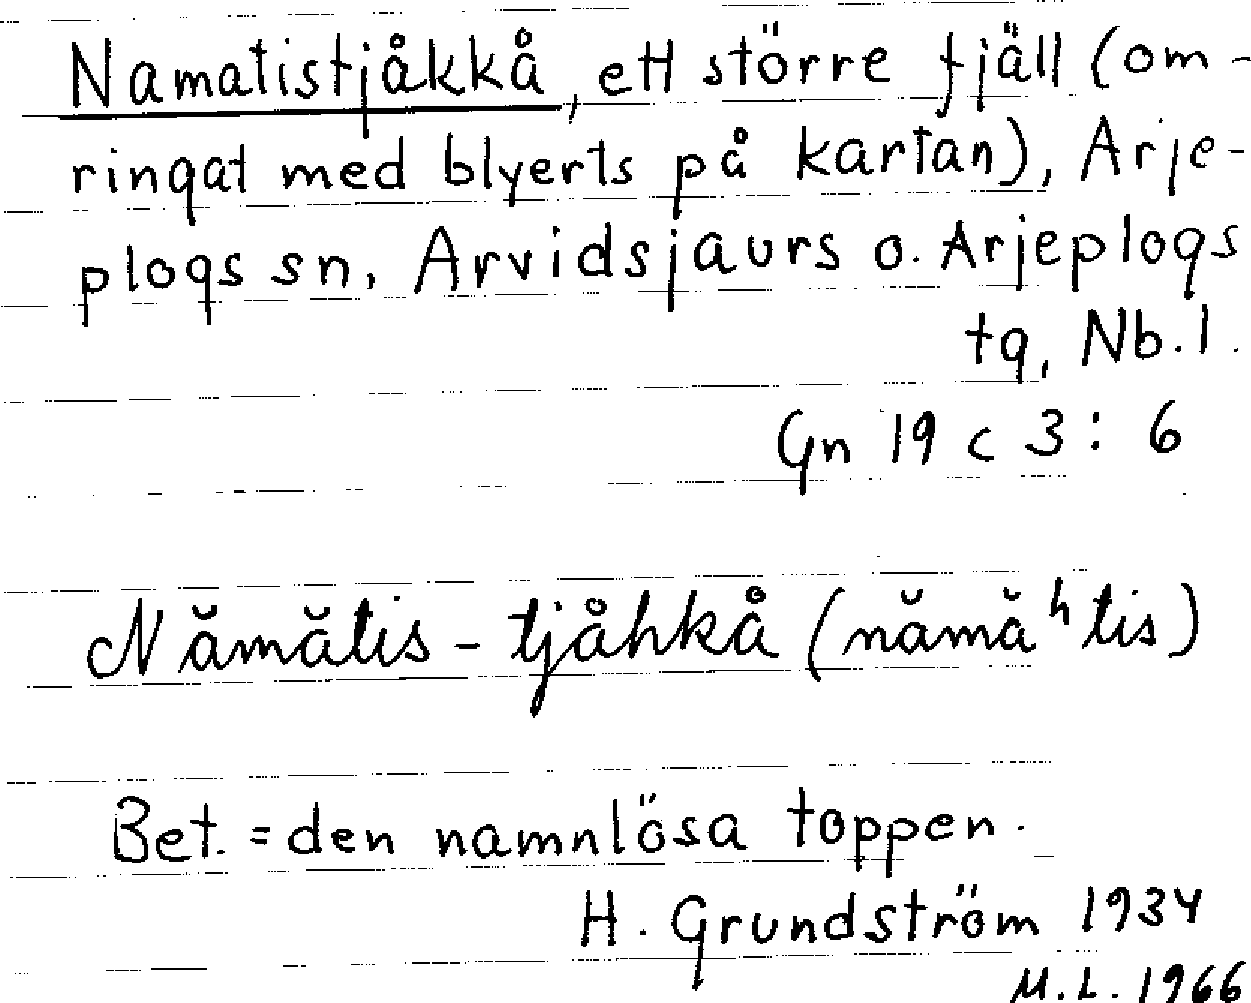 Namatistjåkkå, ett större fjäll (om-
ringat med blyerts på kartan), Arje-
plogs sn, Arvidsjaurs o. Arjeplogs
tg, Nb. l.
Gn 19 c 3: 6
Nåmåtis - tjåhkå (nåmå ʰtis)
Bet. = den namnlösa toppen.
H. Grundström 1934
M. L. 1966